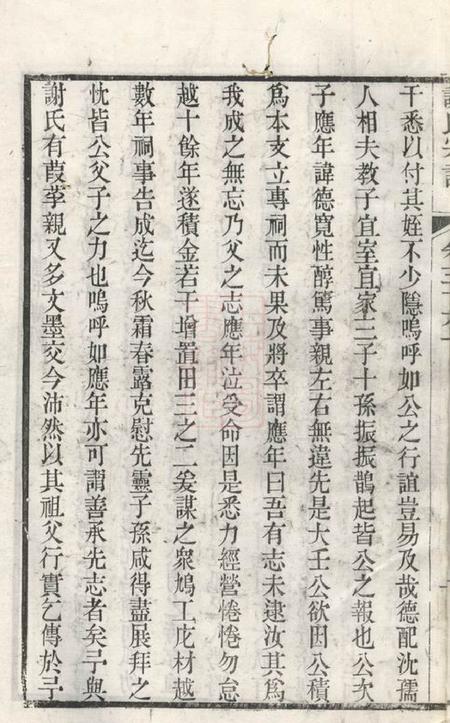 干悉以付其姪不少隱嗚呼如公之行誼豈易及哉德配沈孺
人相夫教子宜室宜家三子十孫振振鵲起皆公之報也公次
子應年諱德寬性醇篤事親左右無違先是大壬公欲因公積
爲本支立專祠而未果及將卒謂應年曰吾有志未逮汝其爲
我成之無忘乃父之志應年泣受命因是悉力經營惓惓勿怠
越十餘年遂積金若干增置田三之二爰謀之衆鳩工庀材越
數年祠事告成迄今秋霜春露克慰先靈子孫咸得盡展拜之
忱皆公父子之力也嗚呼如應年亦可謂善承先志者矣予與
謝氏有葭莩親又多文墨交今沛然以其祖父行實乞傳於予